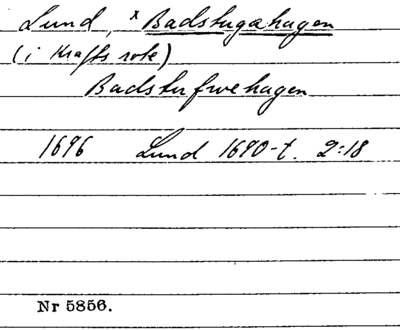 Lund, x Badstugahagen
(i Krafts rote)
Badstufwehagen
1696 Lund 1690-t. 2:18
Nr 5856.